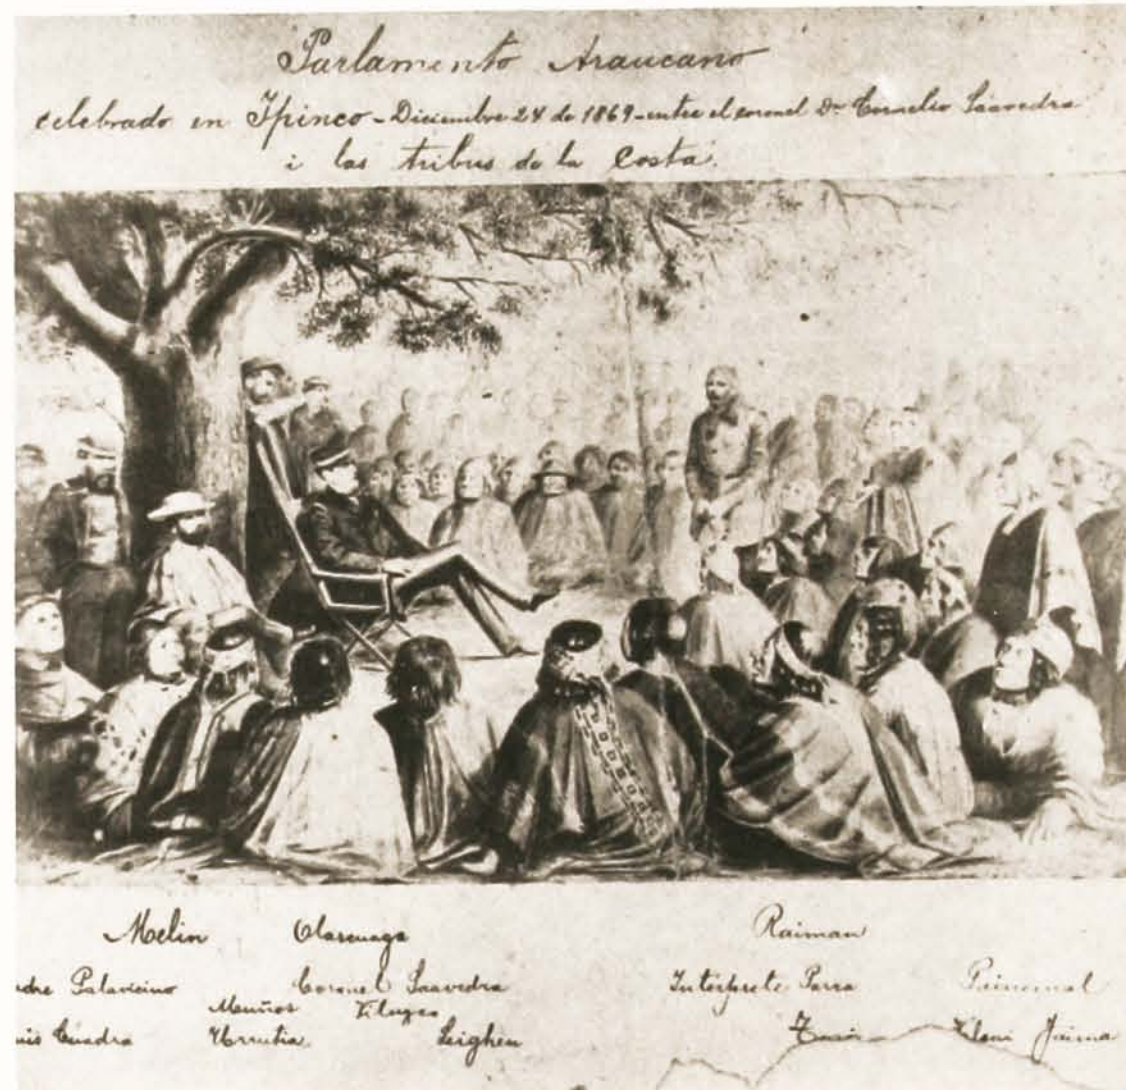 Parlamento Araucano
celebrado en Ipinco - Diciembre 24 de 1869 - entre el coronel Dn Cornelio Saavedra
i las tribus de la Costa.
Melin Olascuaga Raiman
adre Palavicino Coronel Saavedra Intérprete Parra
Muñoz Villagra
uis Cuadra Urrutia Leighen Jaima